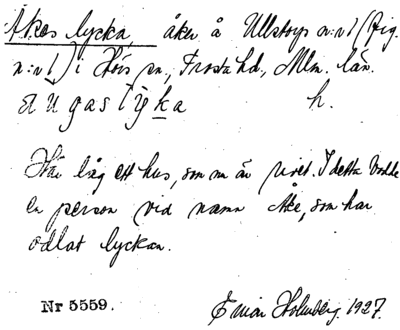 Åkes lycka, åker å Ullstorps n:r 1 (Fig.
n:r 1) i Hörs sn., Frosta hd., Mlm. län.
h.
Här låg ett hus, som nu är rivet. I detta bodde
en person vid namn Åke, som har
odlat lyckan.
Nr 5559. Einar Holmberg. 1927.